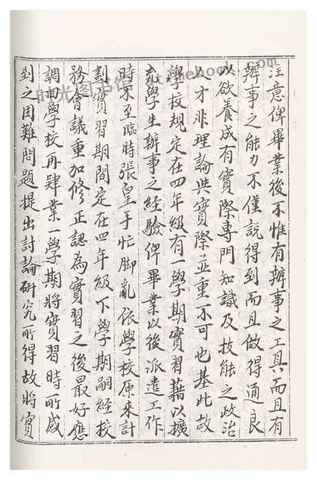 注意俾畢業後不惟有辦事之工具而且有
辦事之能力不僅說得到而且做得通良
以欲養成有實際專門知識及技能之政治
人才非理論與實際並重不可也基此故
學校規定在四年級有一學期實習藉以擴
充學生辦事之經驗俾畢業以後派遣工作
時不至臨時張皇手忙脚亂依學校原來計
劃實習期間定在四年級下學期嗣經校
務會議重加修正認為實習之後最好應
調回學校再肄業一學期將實習時所感
到之困難問題提出討論研究所得故將實